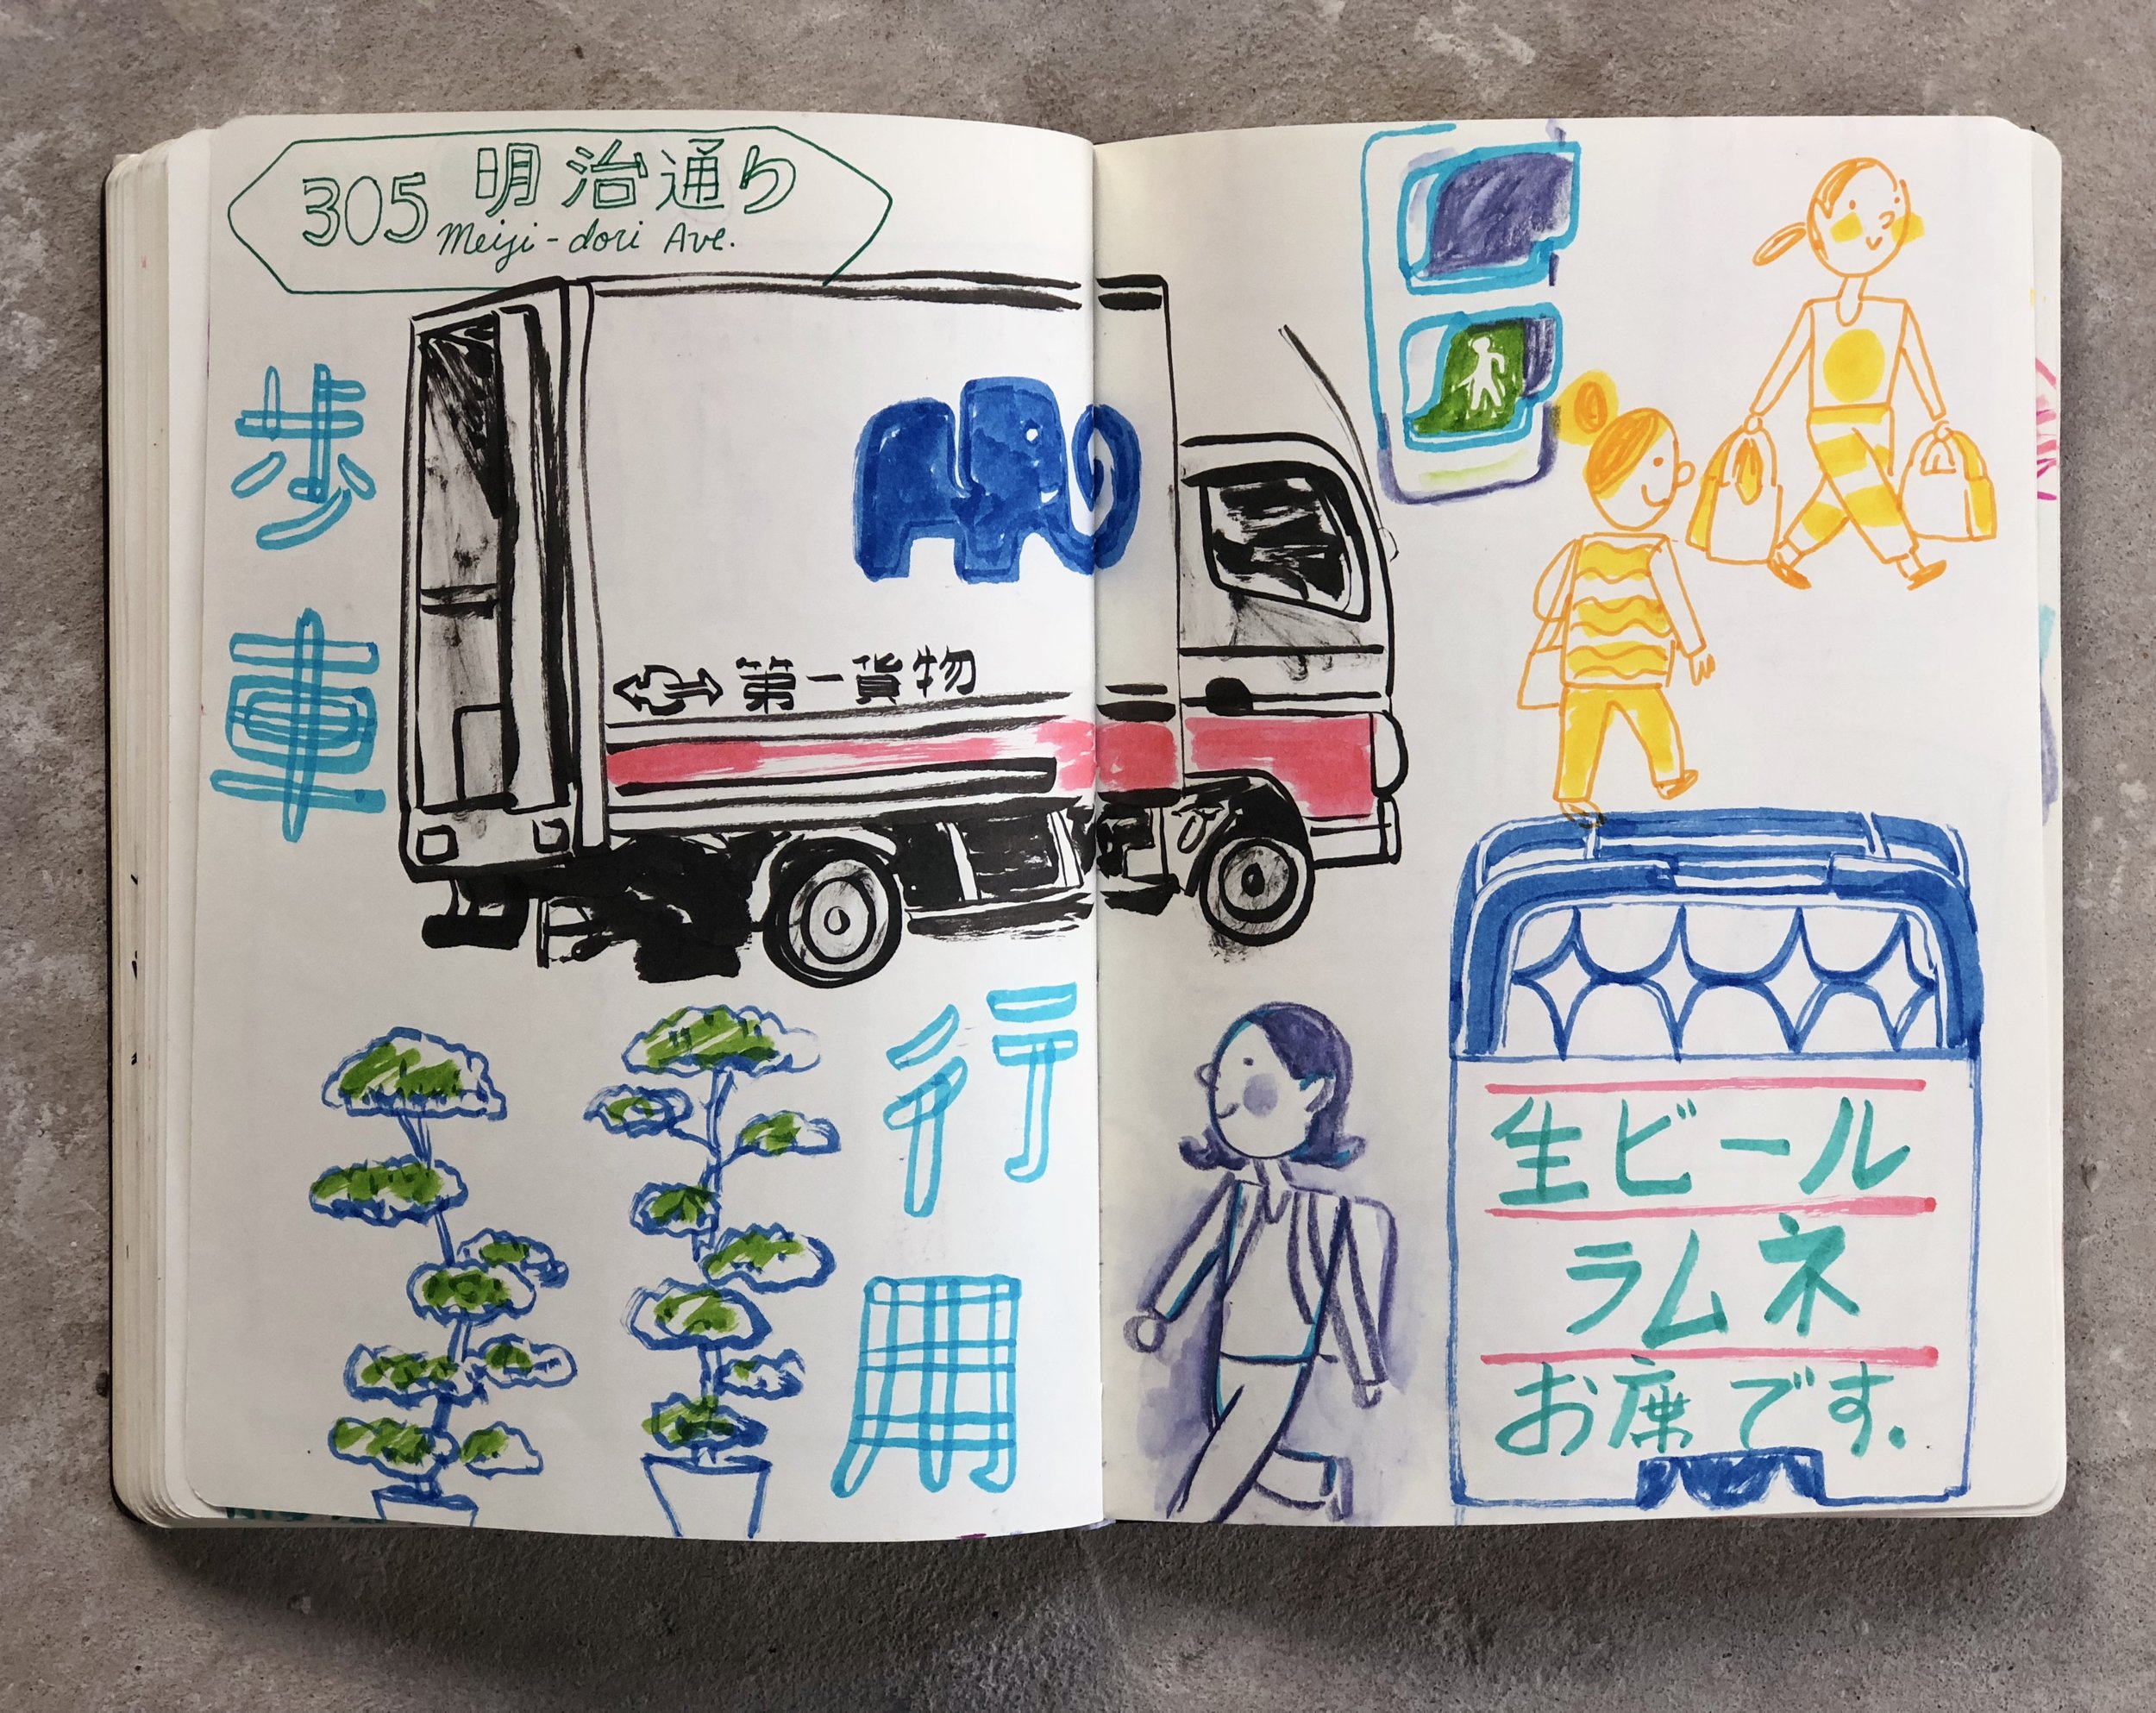 305 明治通り
Meiji-dori Ave.
歩
車
第一貨物
行
用
生ビール
ラムネ
お席です.